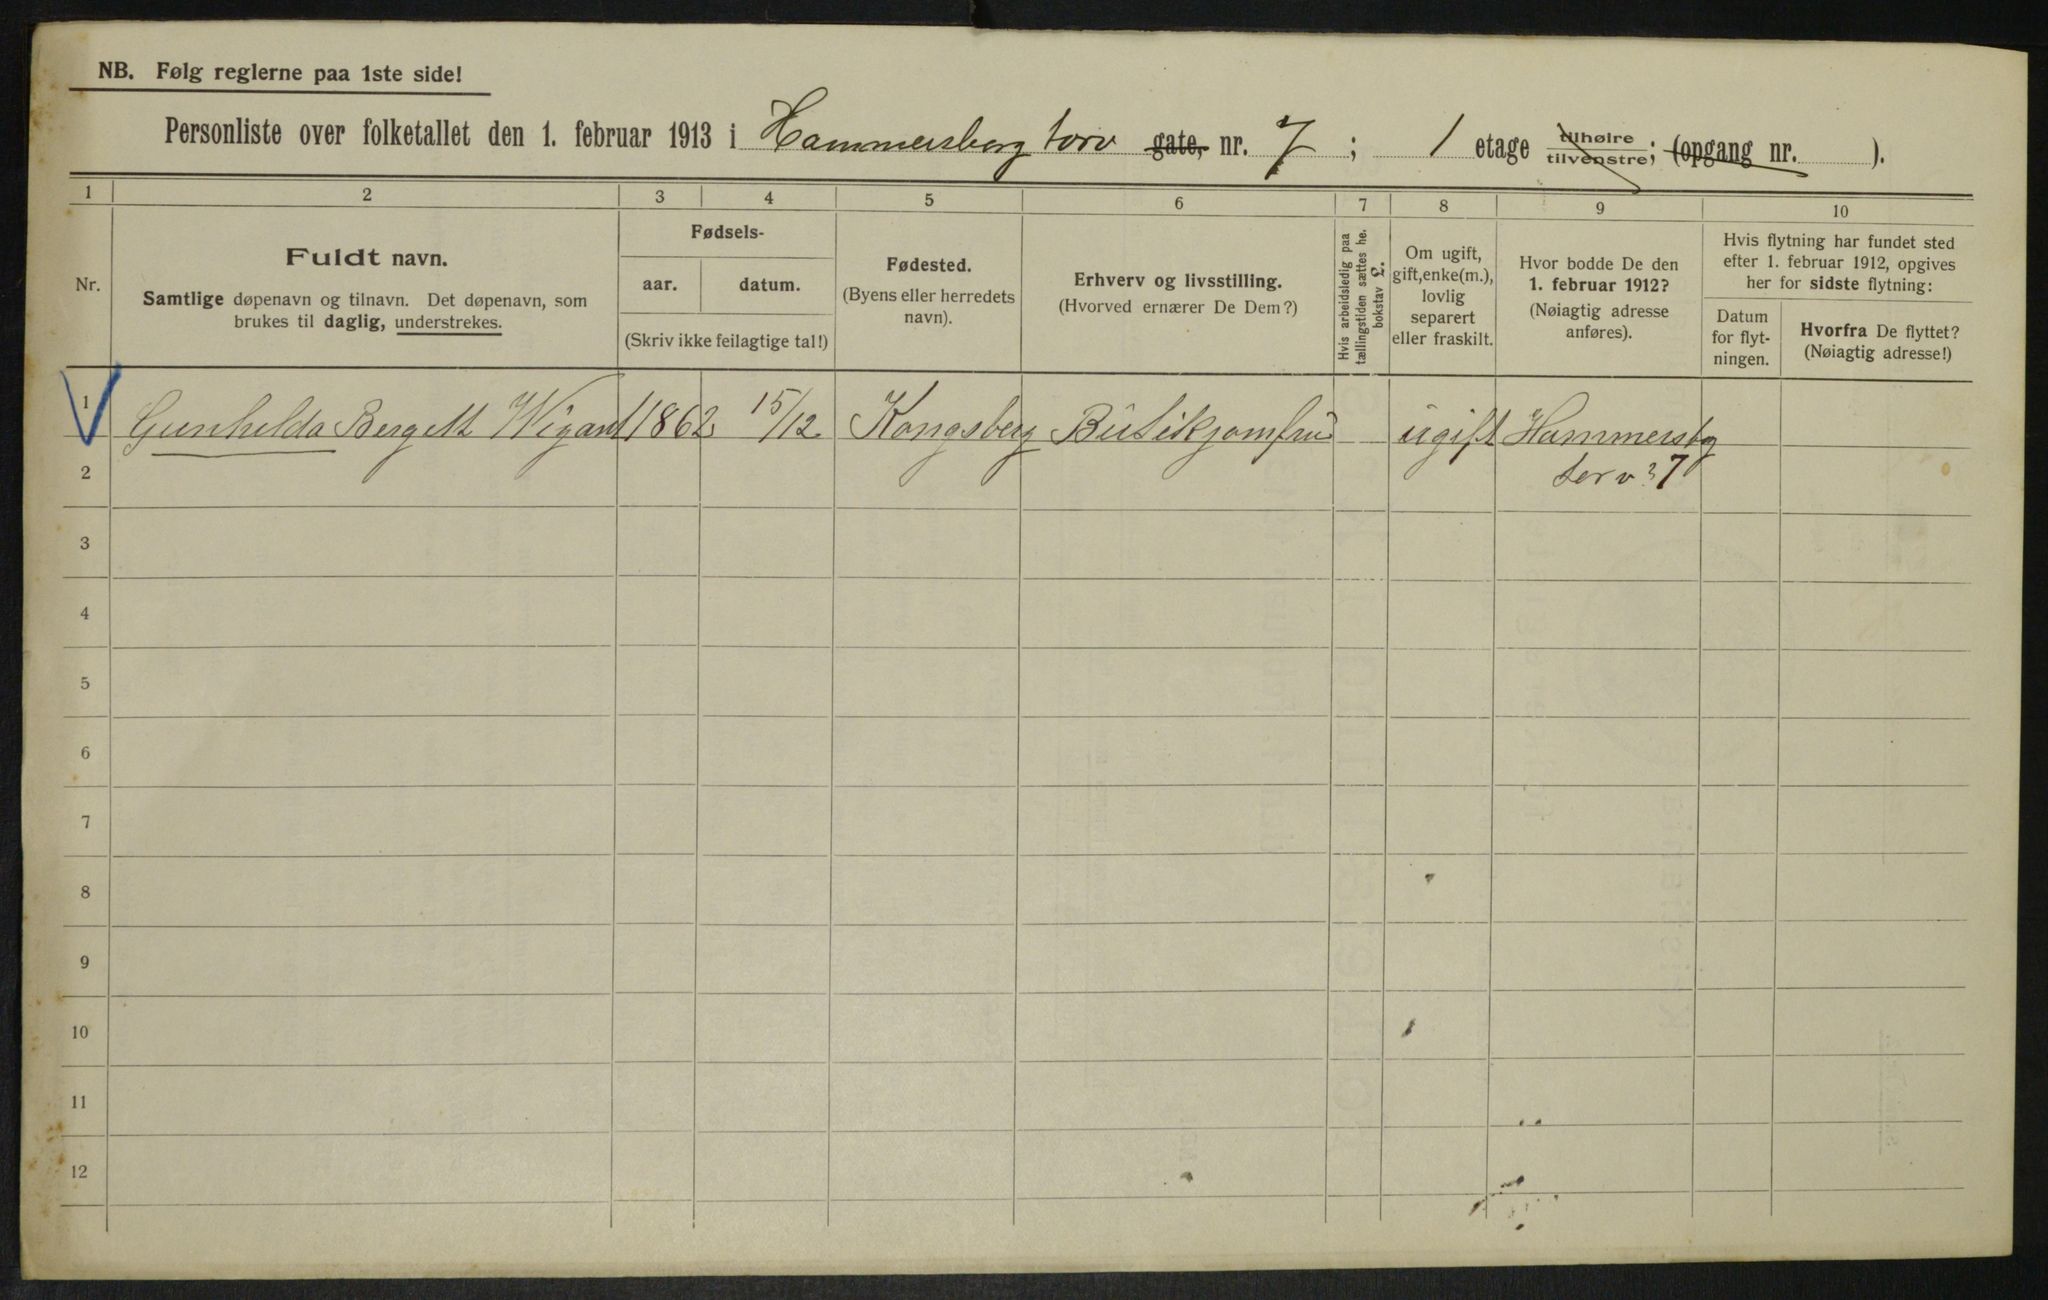 NB. Følg reglerne paa 1ste side!
Personliste over folketallet den 1. februar 1913 i Hammersborg torv gate, nr. 7; 1 etage tilhøire tilvenstre; (opgang nr. ).
1 2 3 4 5 6 7 8 9 10
Nr.
Fuldt navn.
Samtlige døpenavn og tilnavn. Det døpenavn, som
brukes til daglig, understrekes.
Fødsels-
aar. datum.
(Skriv ikke feilagtige tal!)
Fødested.
(Byens eller herredets
navn).
Erhverv og livsstilling.
(Hvorved ernærer De Dem?)
Hvis arbeidsledig paa
tællingstiden sættes he.
bokstav L.
Om ugift,
gift, enke(m.),
lovlig
separert
eller fraskilt.
Hvor bodde De den
1. februar 1912?
(Nøiagtig adresse
anføres).
Hvis flytning har fundet sted
efter 1. februar 1912, opgives
her for sidste flytning:
Datum
for flyt-
ningen.
Hvorfra De flyttet?
(Nøiagtig adresse!)
1 Gunhilda Bergett Wigant 1862 15/12 Kongsberg Butikjomfru ugift Hammersbg
2 torv 7
3
4
5
6
7
8
9
10
11
12